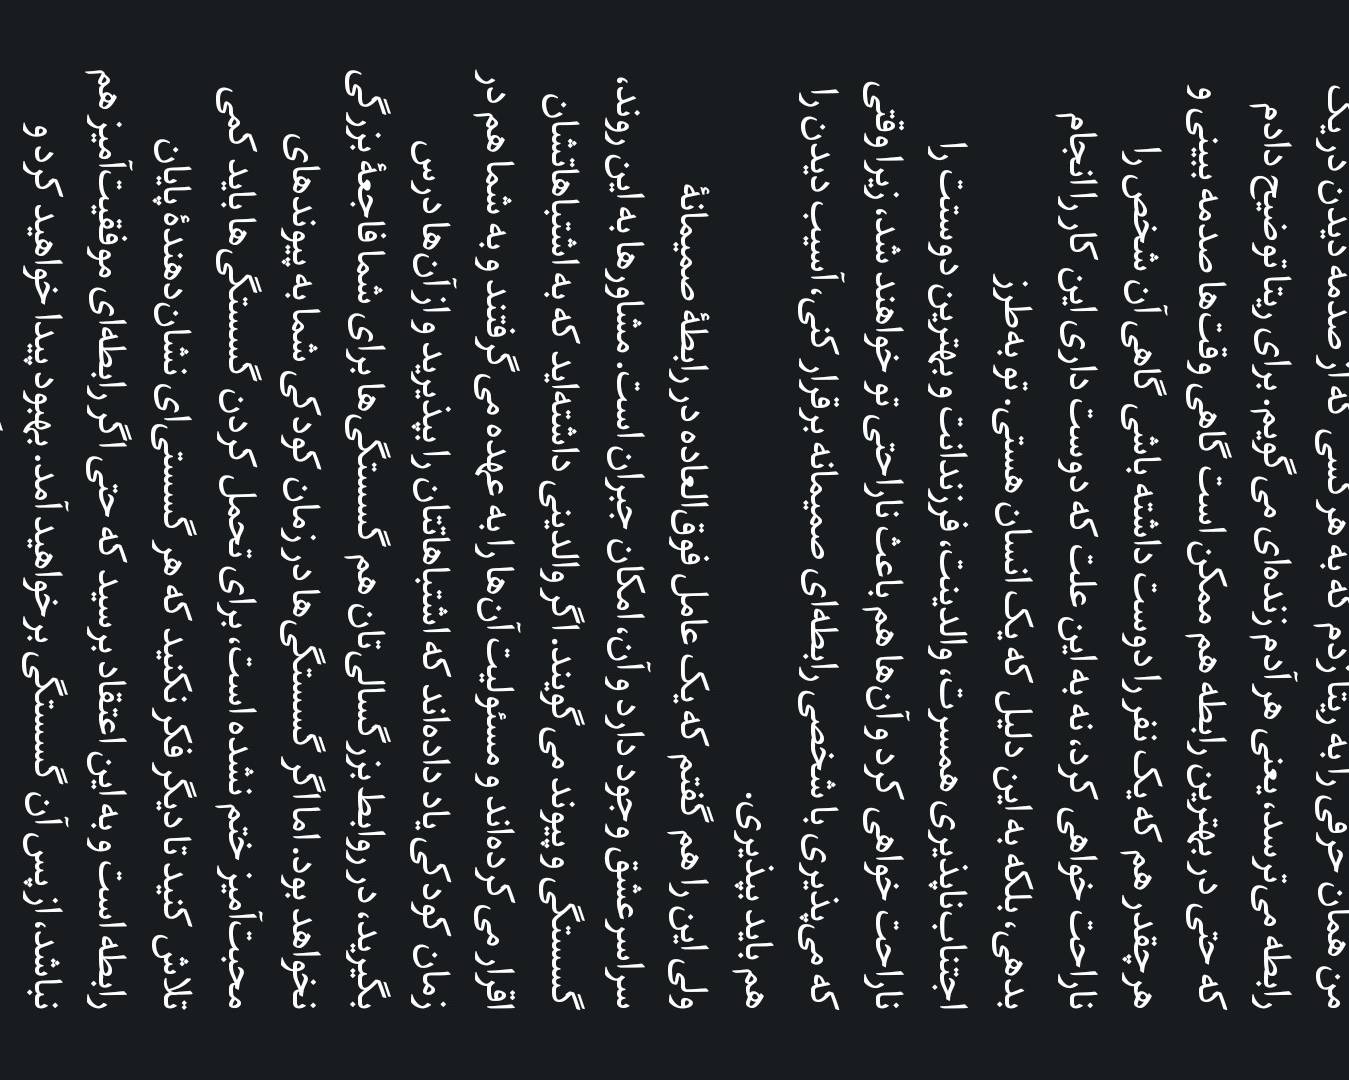 من همان حرفی را به ریتا زدم که به هر کسی که از صدمه دیدن در یک
رابطه می‌ترسد، یعنی هر آدم زنده‌ای می‌گویم. برای ریتا توضیح دادم
که حتی در بهترین رابطه هم ممکن است گاهی وقت‌ها صدمه ببینی و
هر چقدر هم که یک نفر را دوست داشته باشی گاهی آن شخص را
ناراحت خواهی کرد، نه به این علت که دوست داری این کار را انجام
بدهی، بلکه به این دلیل که یک انسان هستی. تو به‌طرز
اجتناب‌ناپذیری همسرت، والدینت، فرزندانت و بهترین دوستت را
ناراحت خواهی کرد و آن‌ها هم باعث ناراحتی تو خواهند شد، زیرا وقتی
که می‌پذیری با شخصی رابطه‌ای صمیمانه برقرار کنی، آسیب دیدن را
هم باید بپذیری.
ولی این را هم گفتم که یک عامل فوق‌العاده در رابطهٔ صمیمانهٔ
سراسر عشق وجود دارد و آن، امکان جبران است. مشاورها به این روند،
گسستگی و پیوند می‌گویند. اگر والدینی داشته‌اید که به اشتباهاتشان
اقرار می‌کرده‌اند و مسئولیت آن‌ها را به عهده می‌گرفتند و به شما هم در
زمان کودکی یاد داده‌اند که اشتباهاتتان را بپذیرید و از آن‌ها درس
بگیرید، در روابط بزرگسالی‌تان هم گسستگی‌ها برای شما فاجعهٔ بزرگی
نخواهد بود. اما اگر گسستگی‌ها در زمان کودکی شما به پیوندهای
محبت‌آمیز ختم نشده است، برای تحمل کردن گسستگی‌ها باید کمی
تلاش کنید تا دیگر فکر نکنید که هر گسستی‌ای نشان‌دهندهٔ پایان
رابطه است و به این اعتقاد برسید که حتی اگر رابطه‌ای موفقیت‌آمیز هم
نباشد، از پس آن گسستگی بر خواهید آمد. بهبود پیدا خواهید کرد و